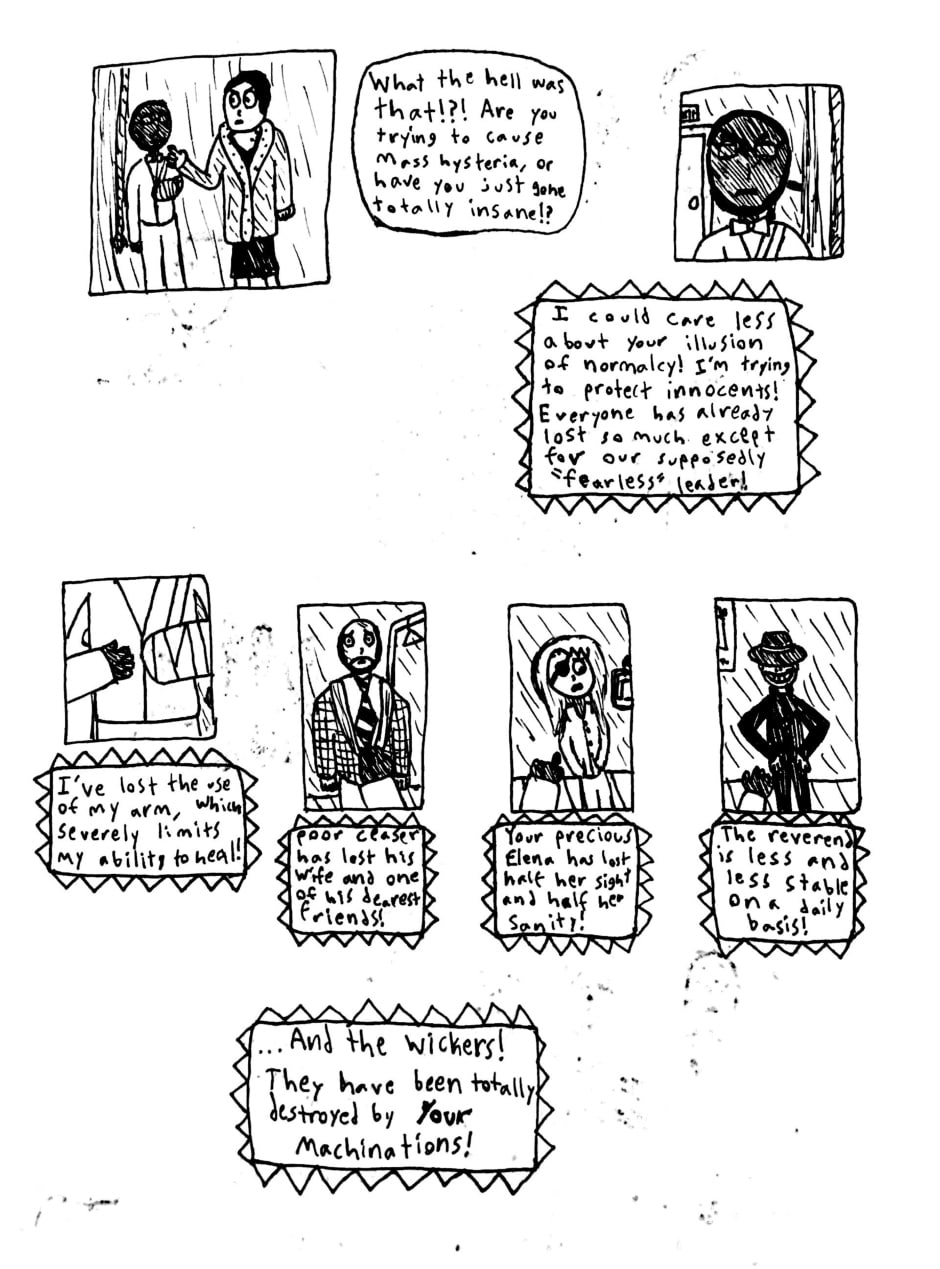 What the hell was
that!?! Are you
trying to cause
Mass hysteria, or
have you just gone
totally insane!?
I could care less
about your illusion
of normalcy! I'm trying
to protect innocents!
Everyone has already
lost so much except
for our supposedly
"fearless" leader!
I've lost the use
of my arm, which
severely limits
my ability to heal!
poor ceaser
has lost his
wife and one
of his dearest
friends!
Your precious
Elena has lost
half her sight
and half her
sanity!
The reverend
is less and
less stable
on a daily
basis!
...And the wickers!
They have been totally
destroyed by Your
Machinations!